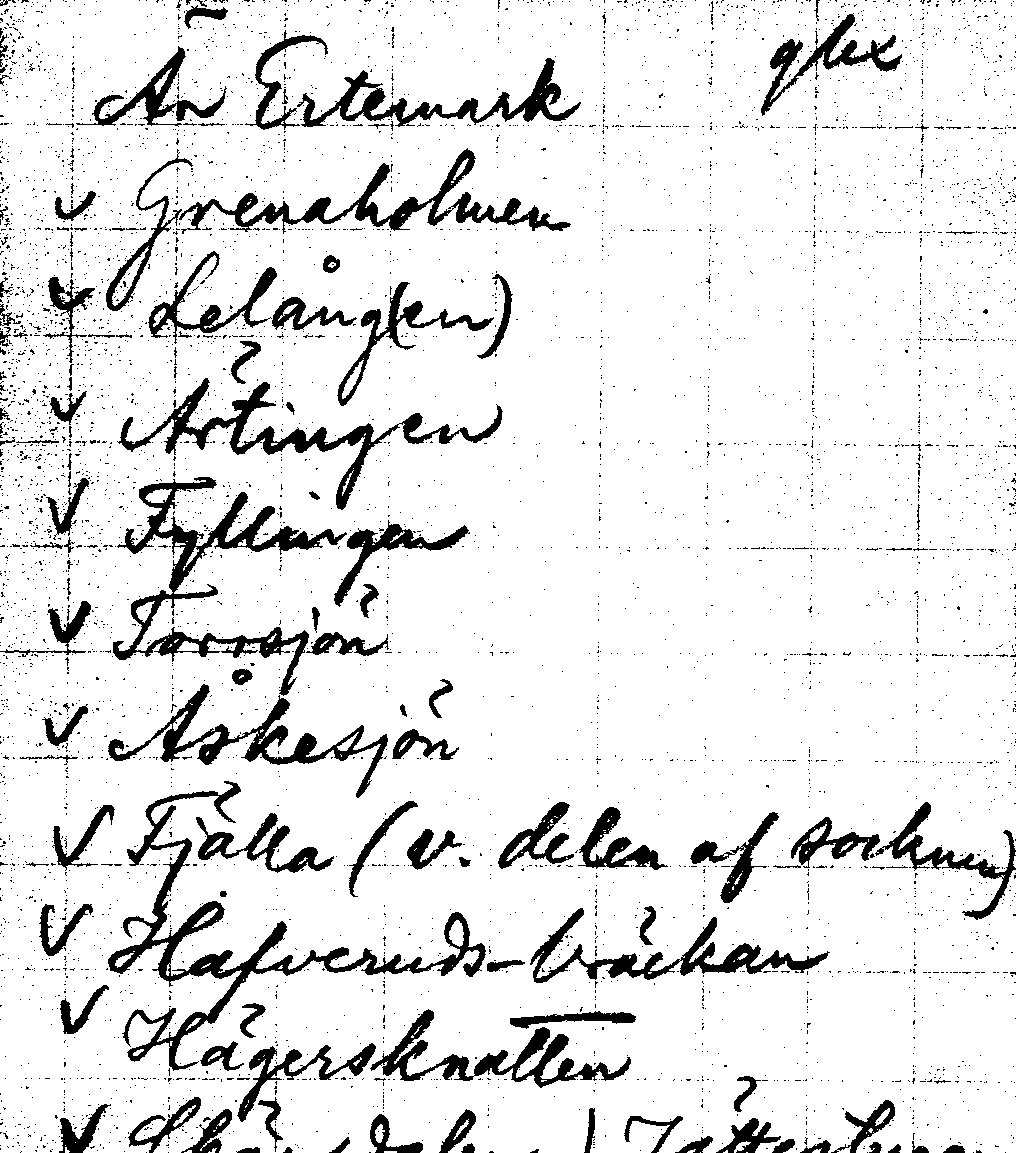 Är Ertemark
Grenaholmen
Lelång(en)
Ärtingen
Fyllingen
Torrsjön
Åskesjön
Fjälla (v. delen af socknen)
Hafveruds-bräckan
Hägersknatten